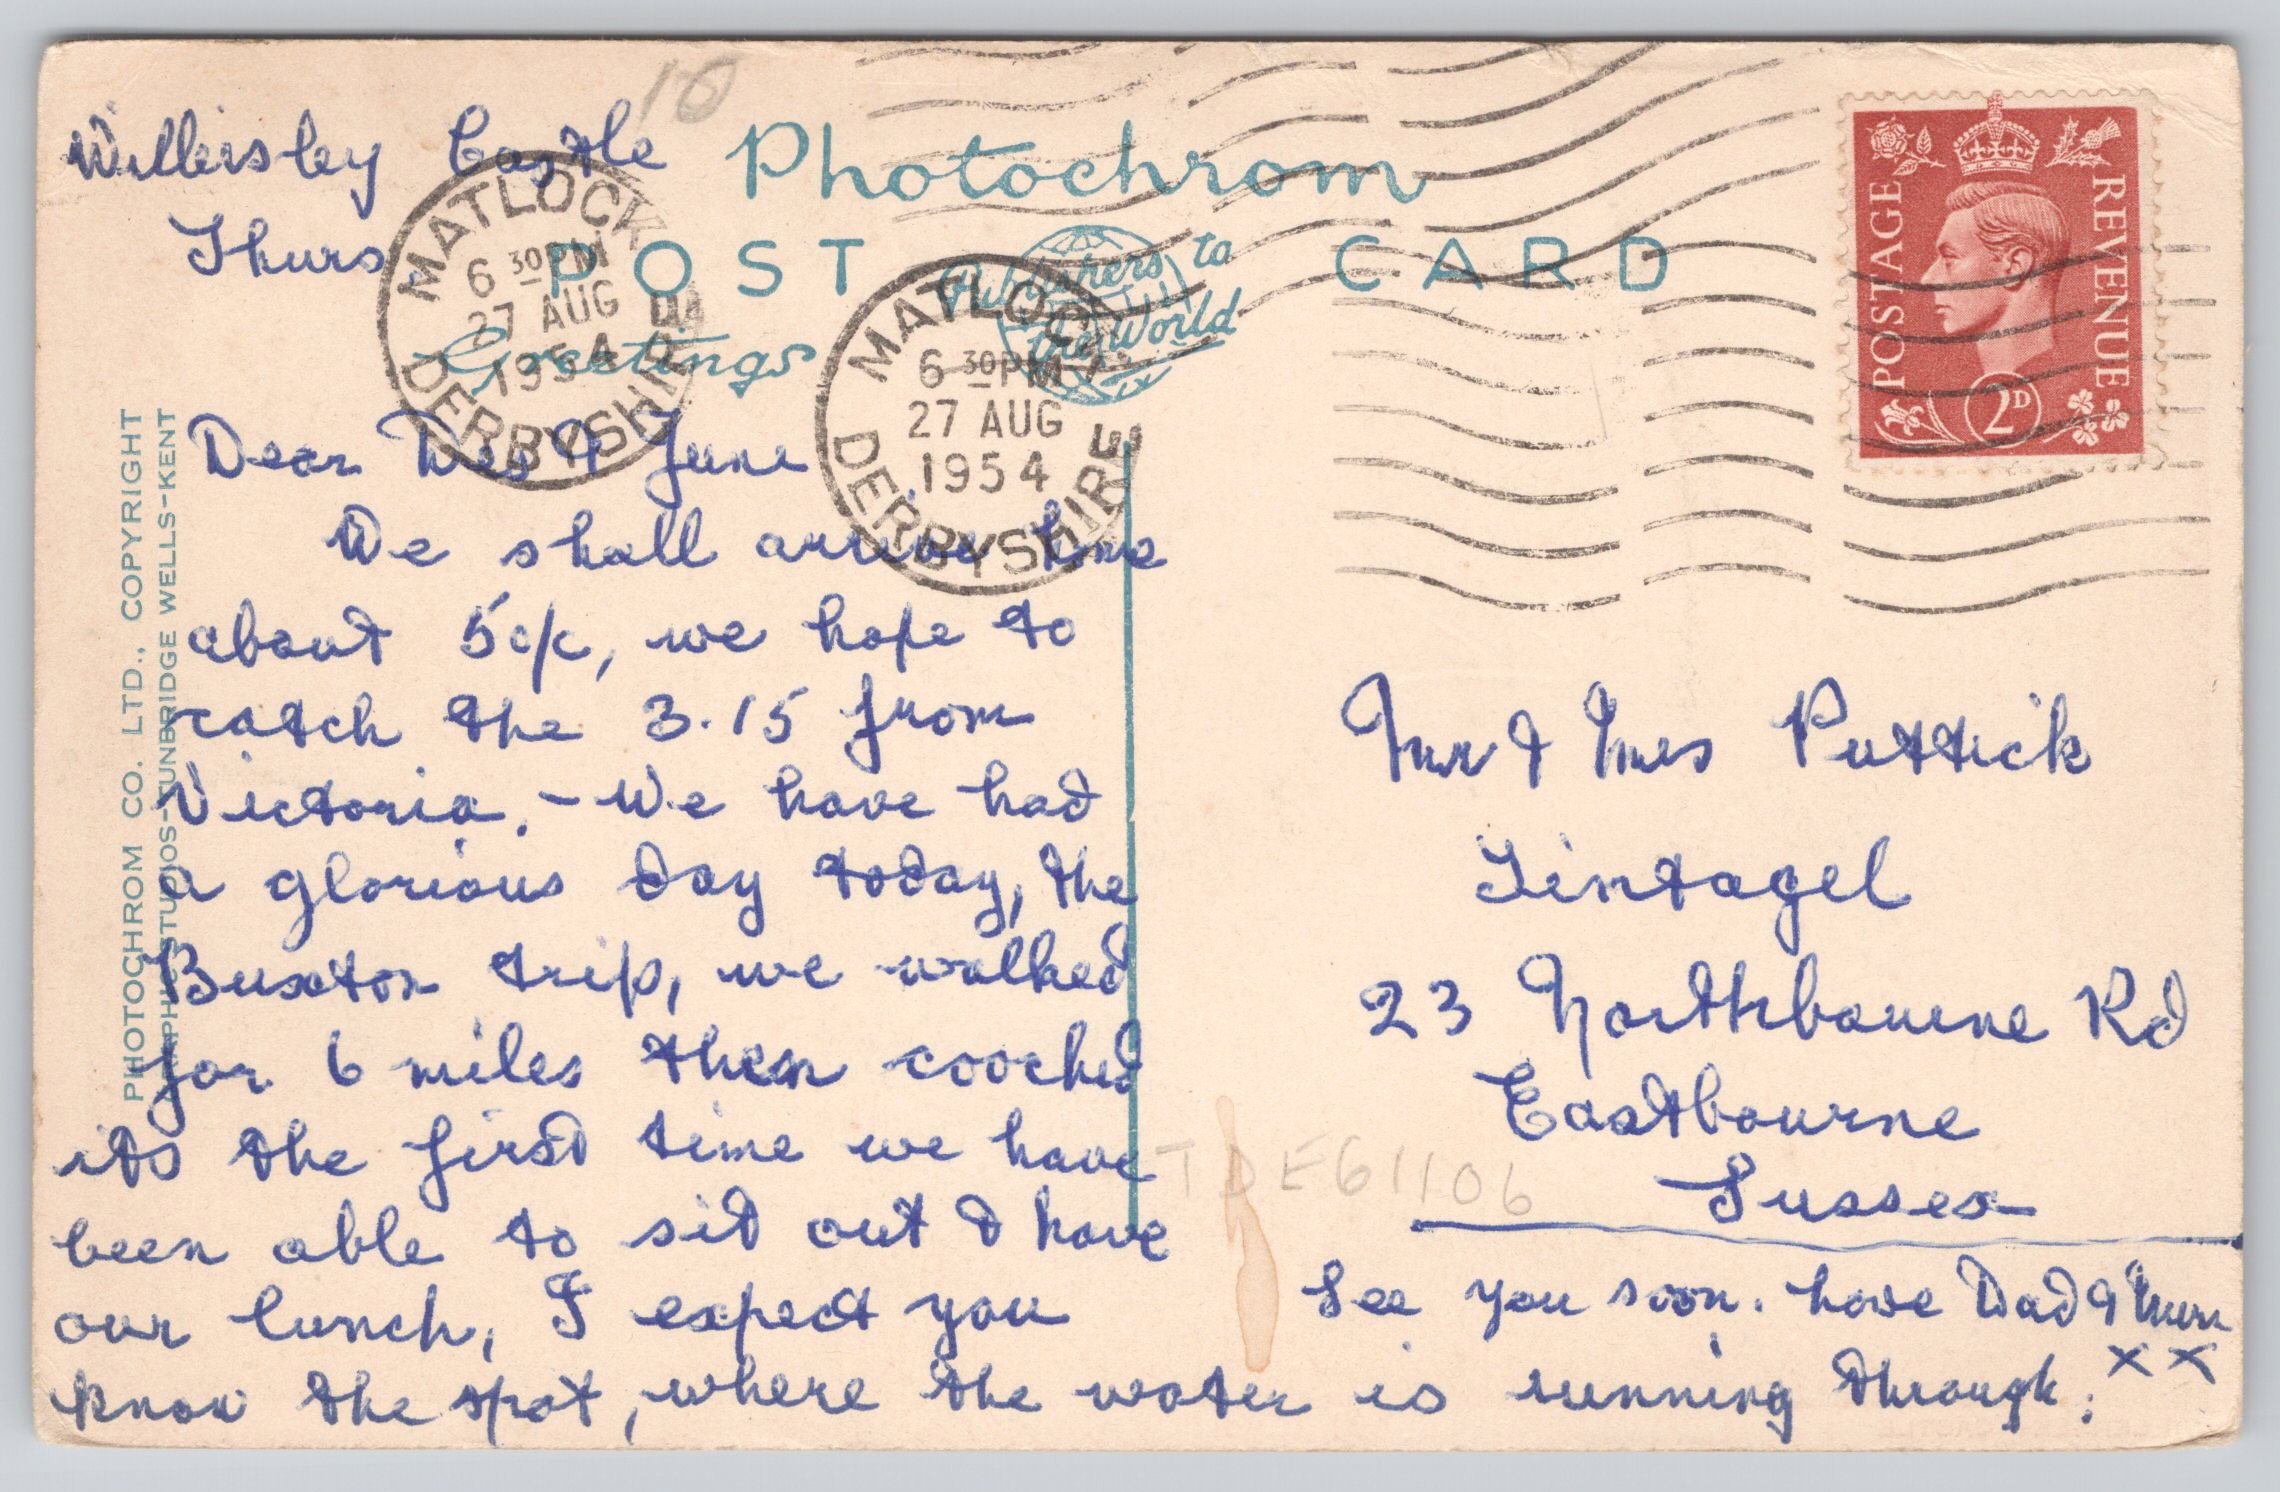 Willersley Castle
Thurs.
10
Photochrom
POST CARD
Publishers to
the World
Greetings
MATLOCK
6 30 PM
27 AUG
1954
DERBYSHIRE
MATLOCK
6 30 PM
27 AUG
1954
DERBYSHIRE
POSTAGE
REVENUE
2D
PHOTOCHROM CO. LTD., COPYRIGHT
GRAPHIC STUDIOS-TUNBRIDGE WELLS-KENT
Dear Des & June
We shall arrive home
about 5 o/c, we hope to
catch the 3.15 from
Victoria. - We have had
a glorious day today, the
Buxton trip, we walked
for 6 miles then coached
its the first time we have
been able to sit out & have
our lunch, I expect you
know the spot, where the water is running through.
Mr & Mrs Puttick
Tintagel
23 Northbourne Rd
Eastbourne
Sussex
TDE61106
See you soon. love Dad & Mum
x x